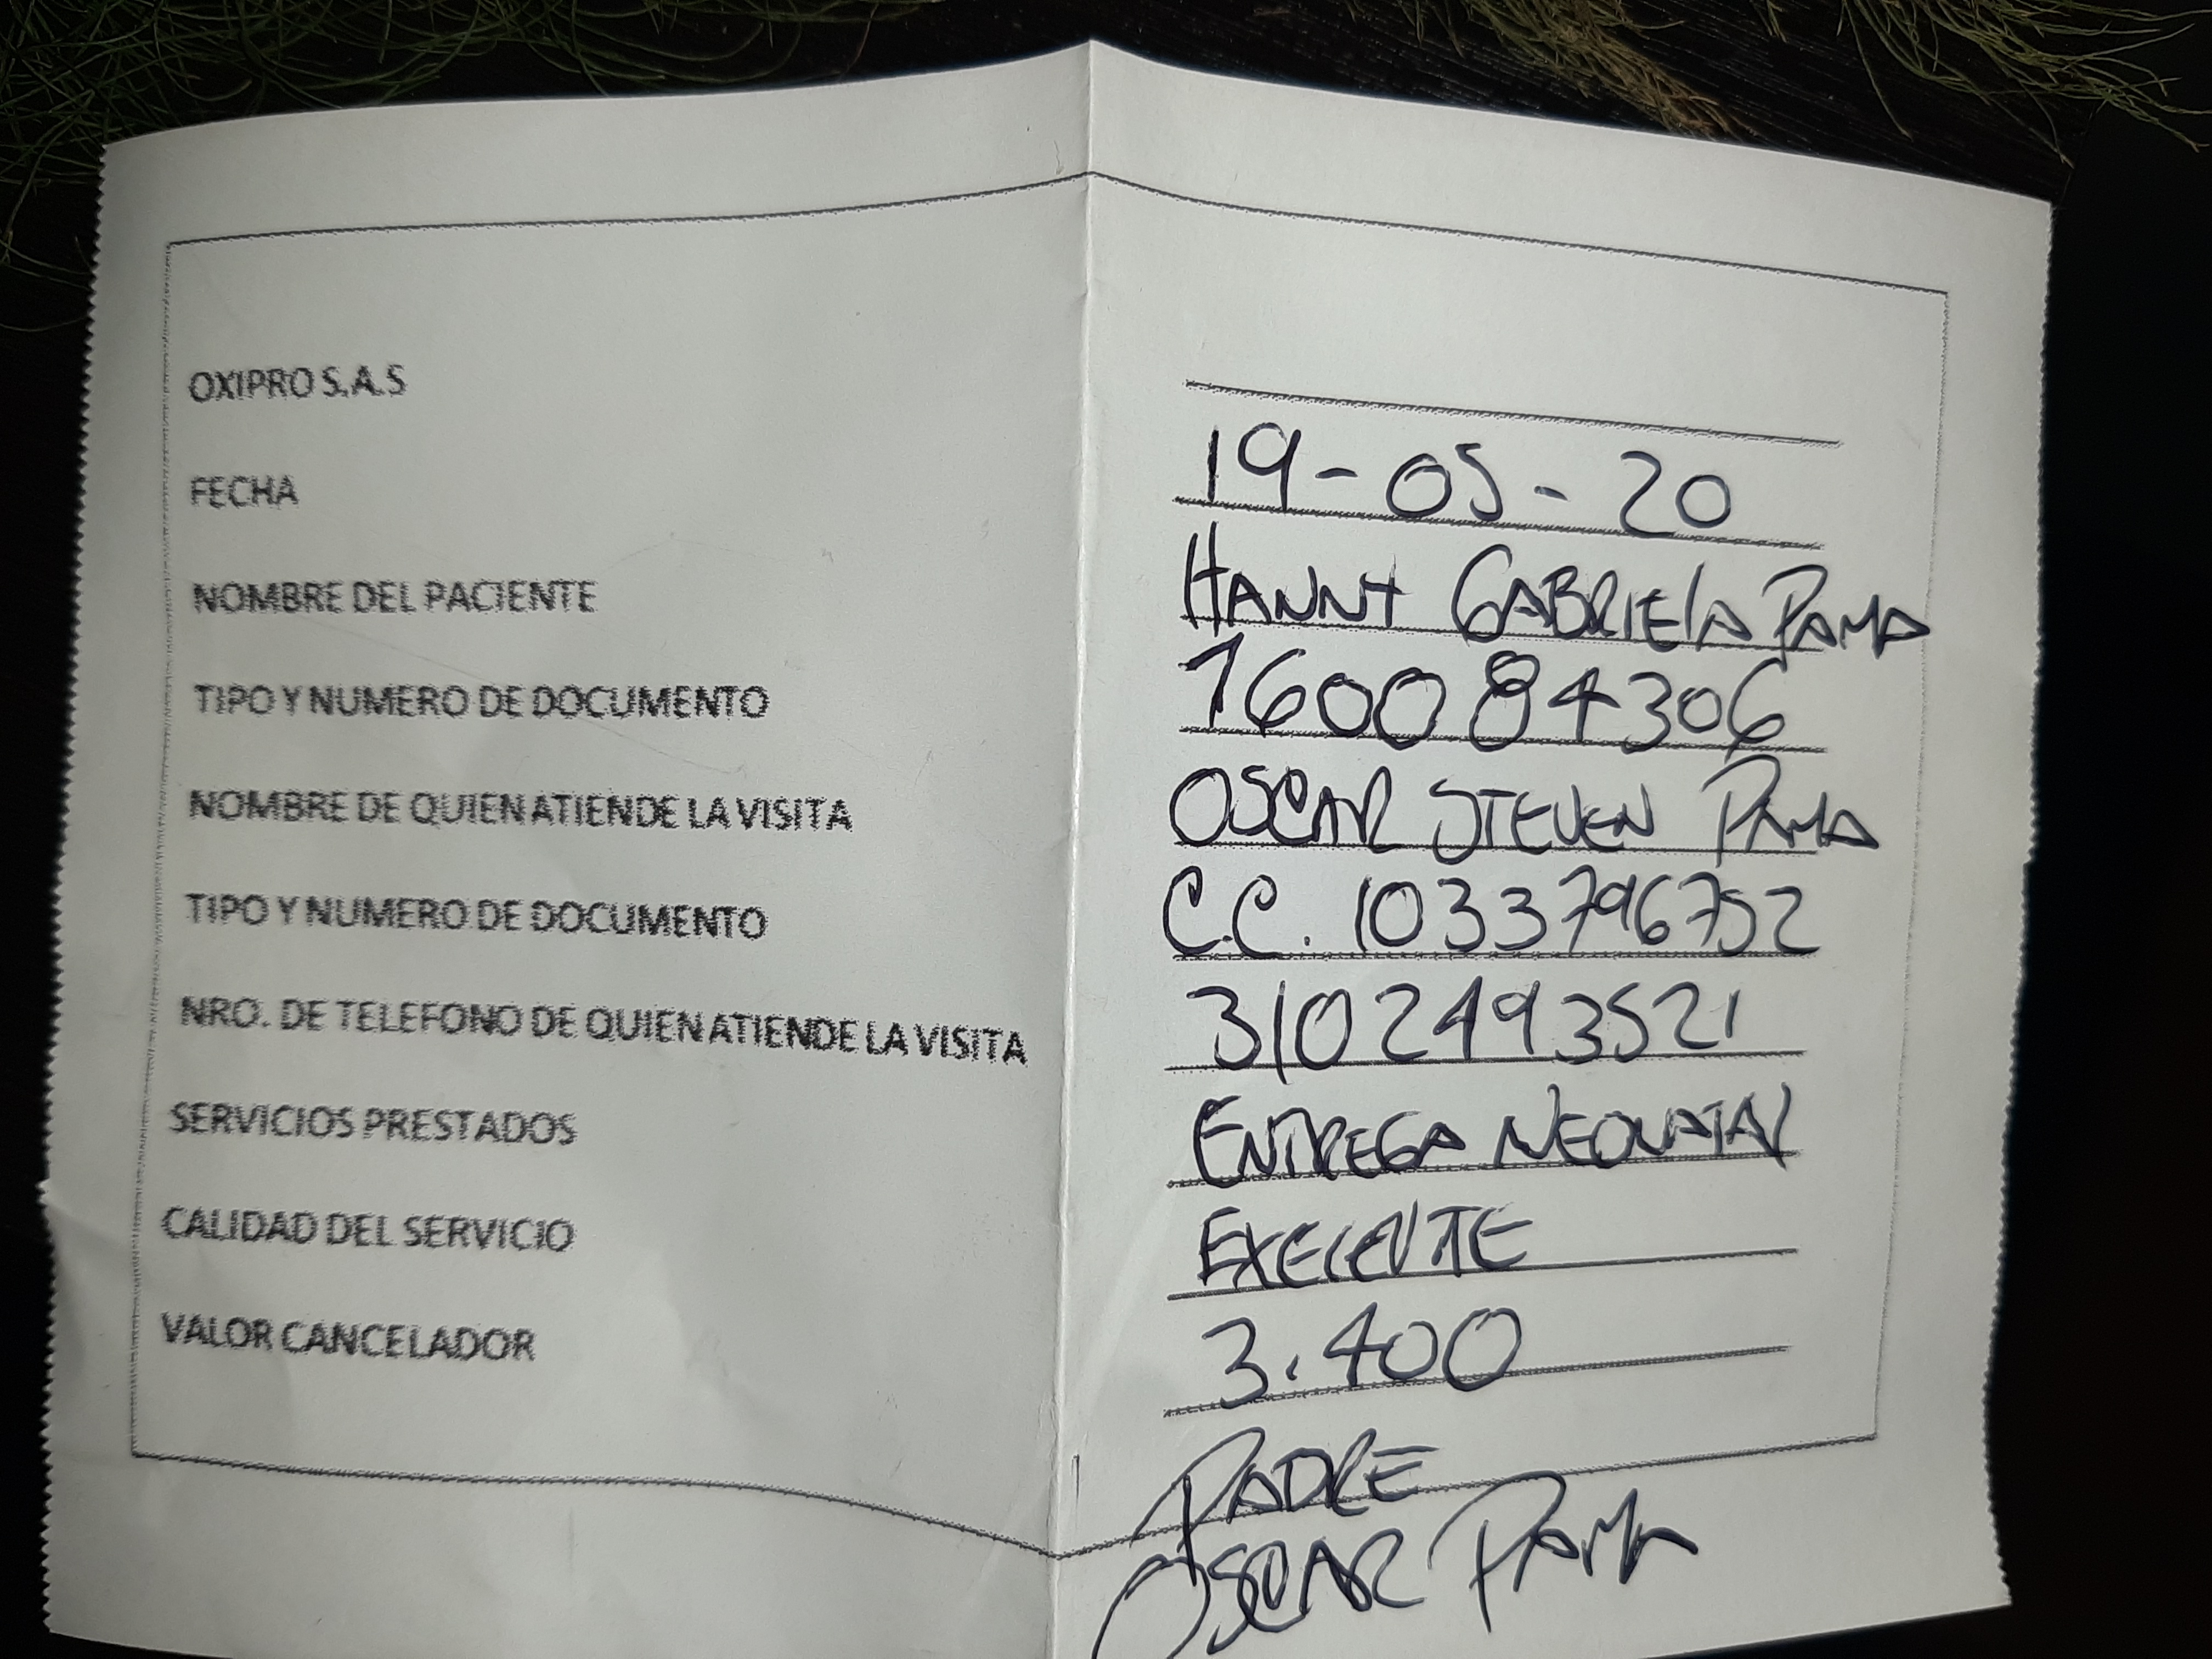 OXIPRO S.A.S
FECHA 19-05-20
NOMBRE DEL PACIENTE HANNY GABRIELA PAMA
TIPO Y NUMERO DE DOCUMENTO 160084306
NOMBRE DE QUIEN ATIENDE LA VISITA OSCAR STEVEN PAMA
TIPO Y NUMERO DE DOCUMENTO C.C. 1033796752
NRO. DE TELEFONO DE QUIEN ATIENDE LA VISITA 3102493521
SERVICIOS PRESTADOS ENTREGA NEONATAL
CALIDAD DEL SERVICIO EXELENTE
VALOR CANCELADOR 3.400
PADRE
OSCAR PAMA